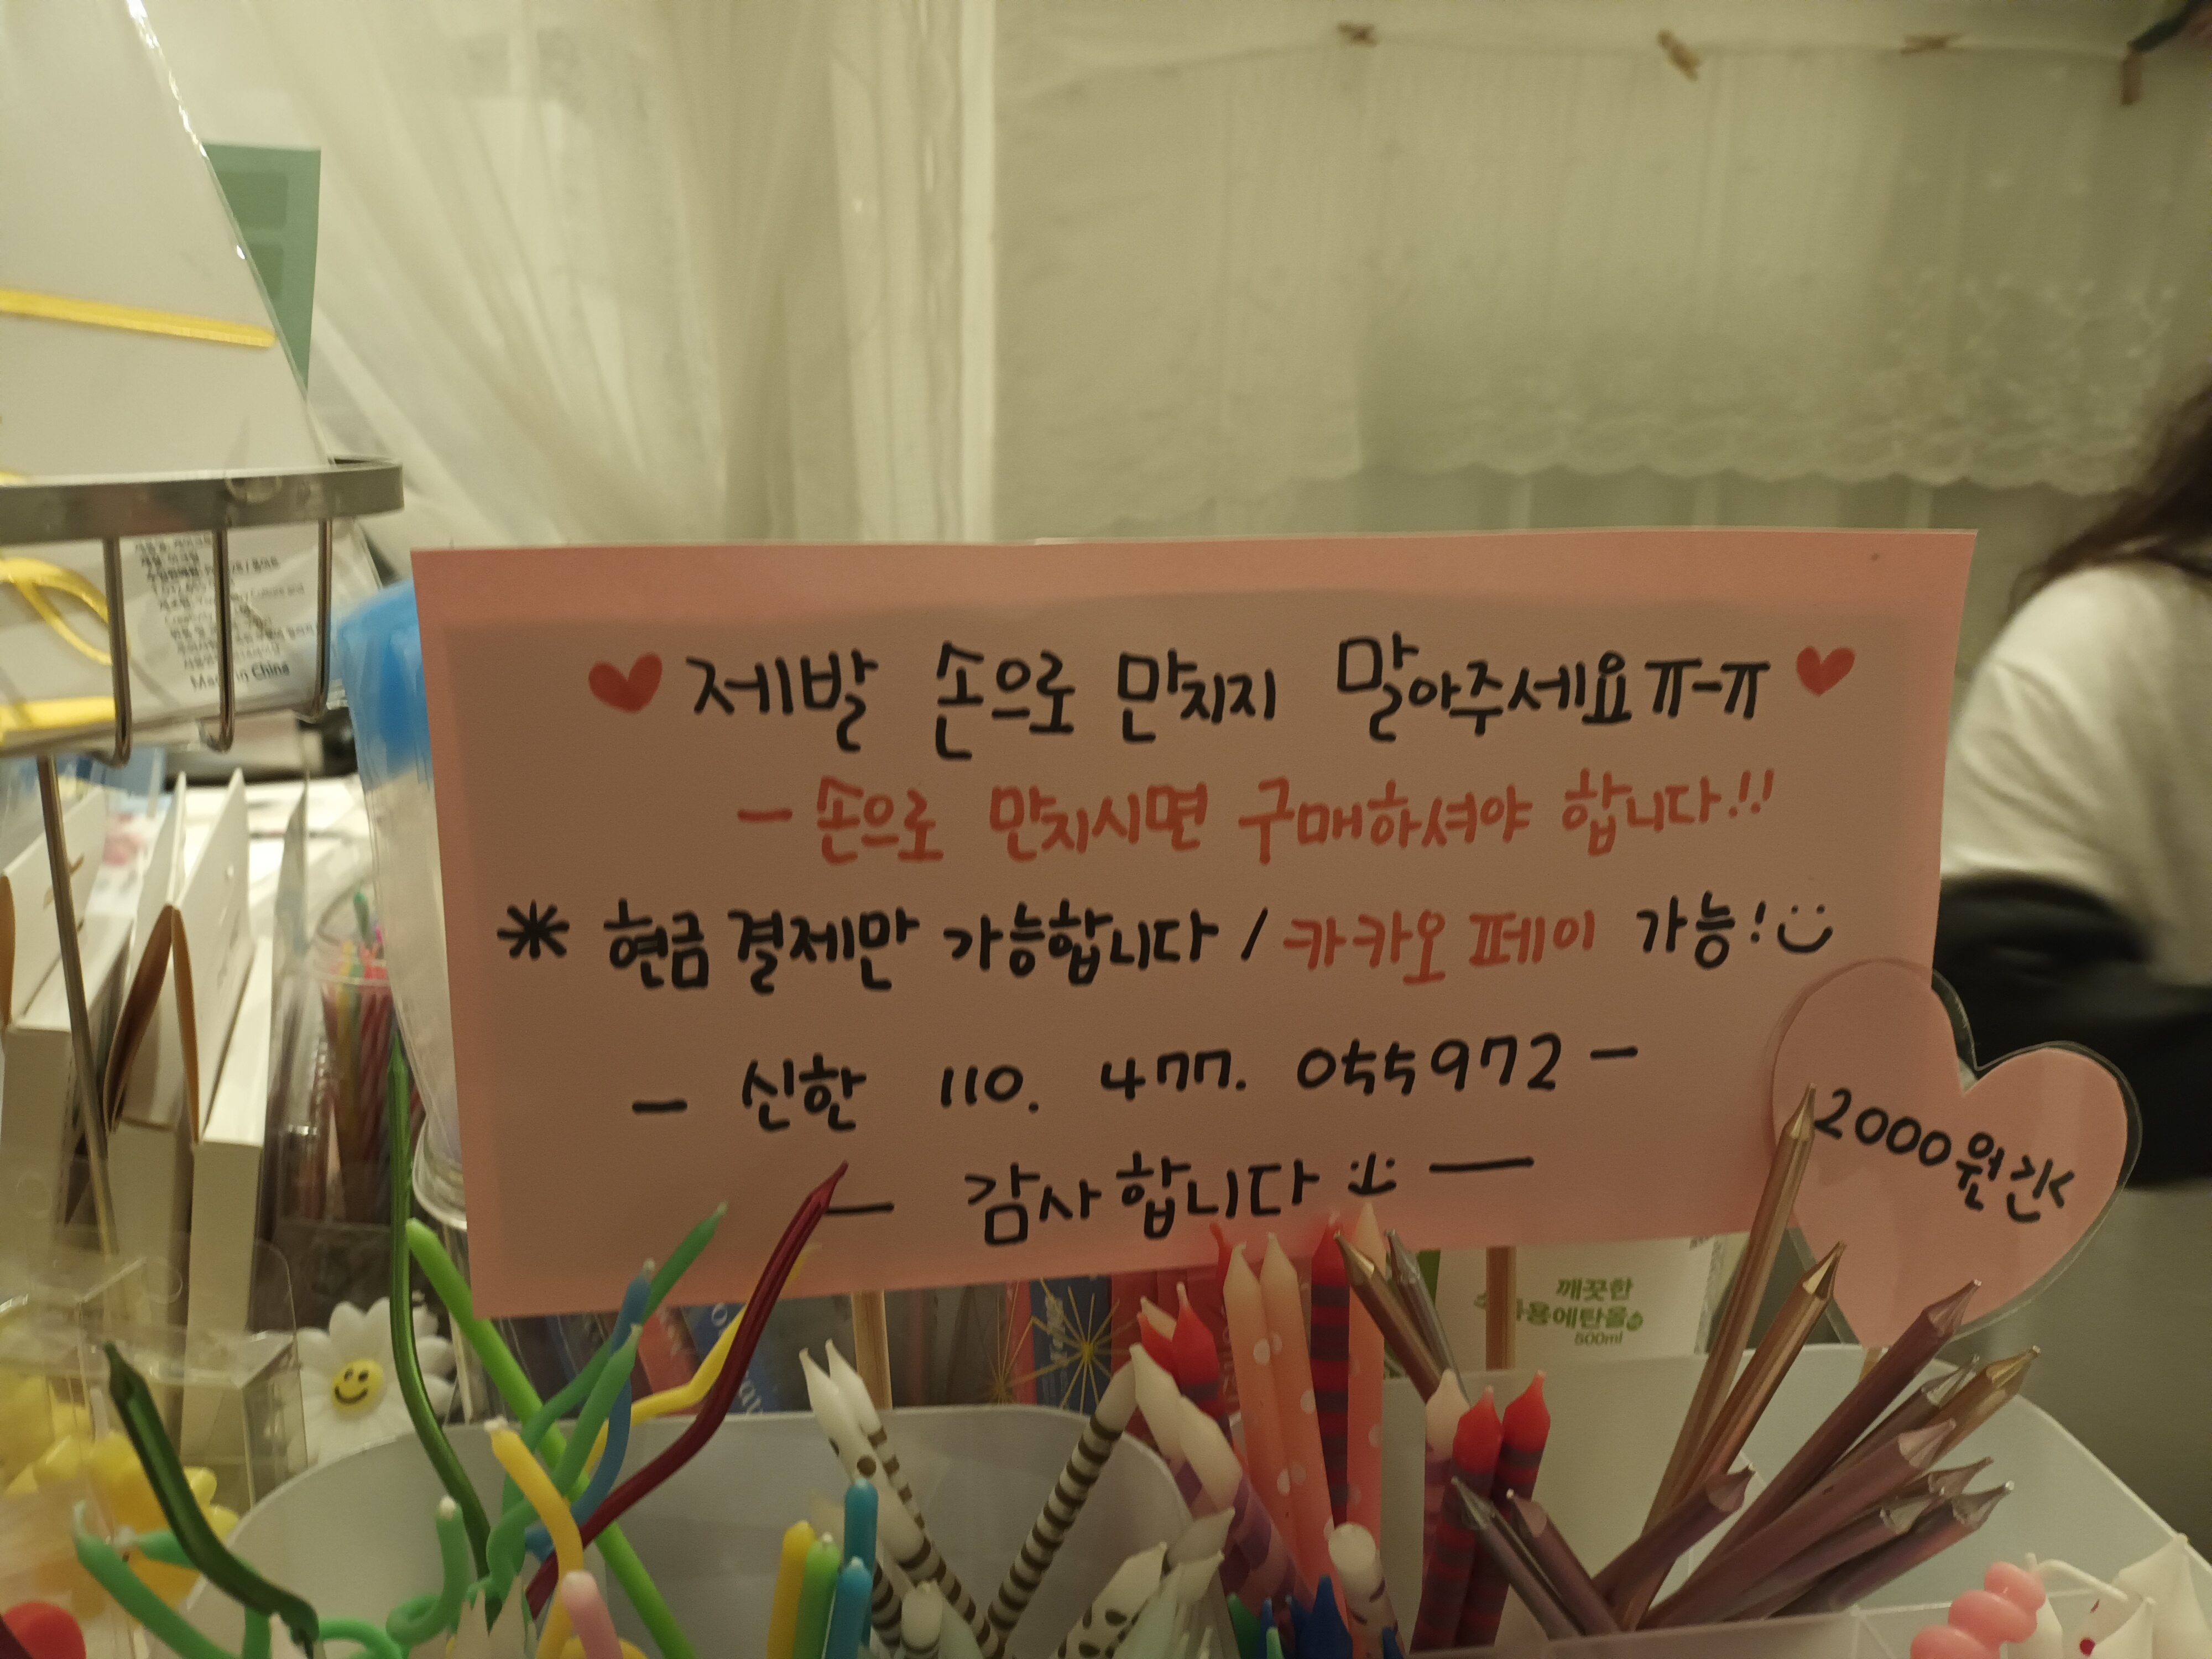 ♥ 제발 손으로 만지지 말아주세요 ㅠ-ㅠ ♥
- 손으로 만지시면 구매하셔야 합니다!!
* 현금 결제만 가능합니다 / 카카오 페이 가능! :)
- 신한 110. 477. 055972 -
- 감사합니다 :) -
2000원
깨끗한
용에탄올
500ml
Made in China